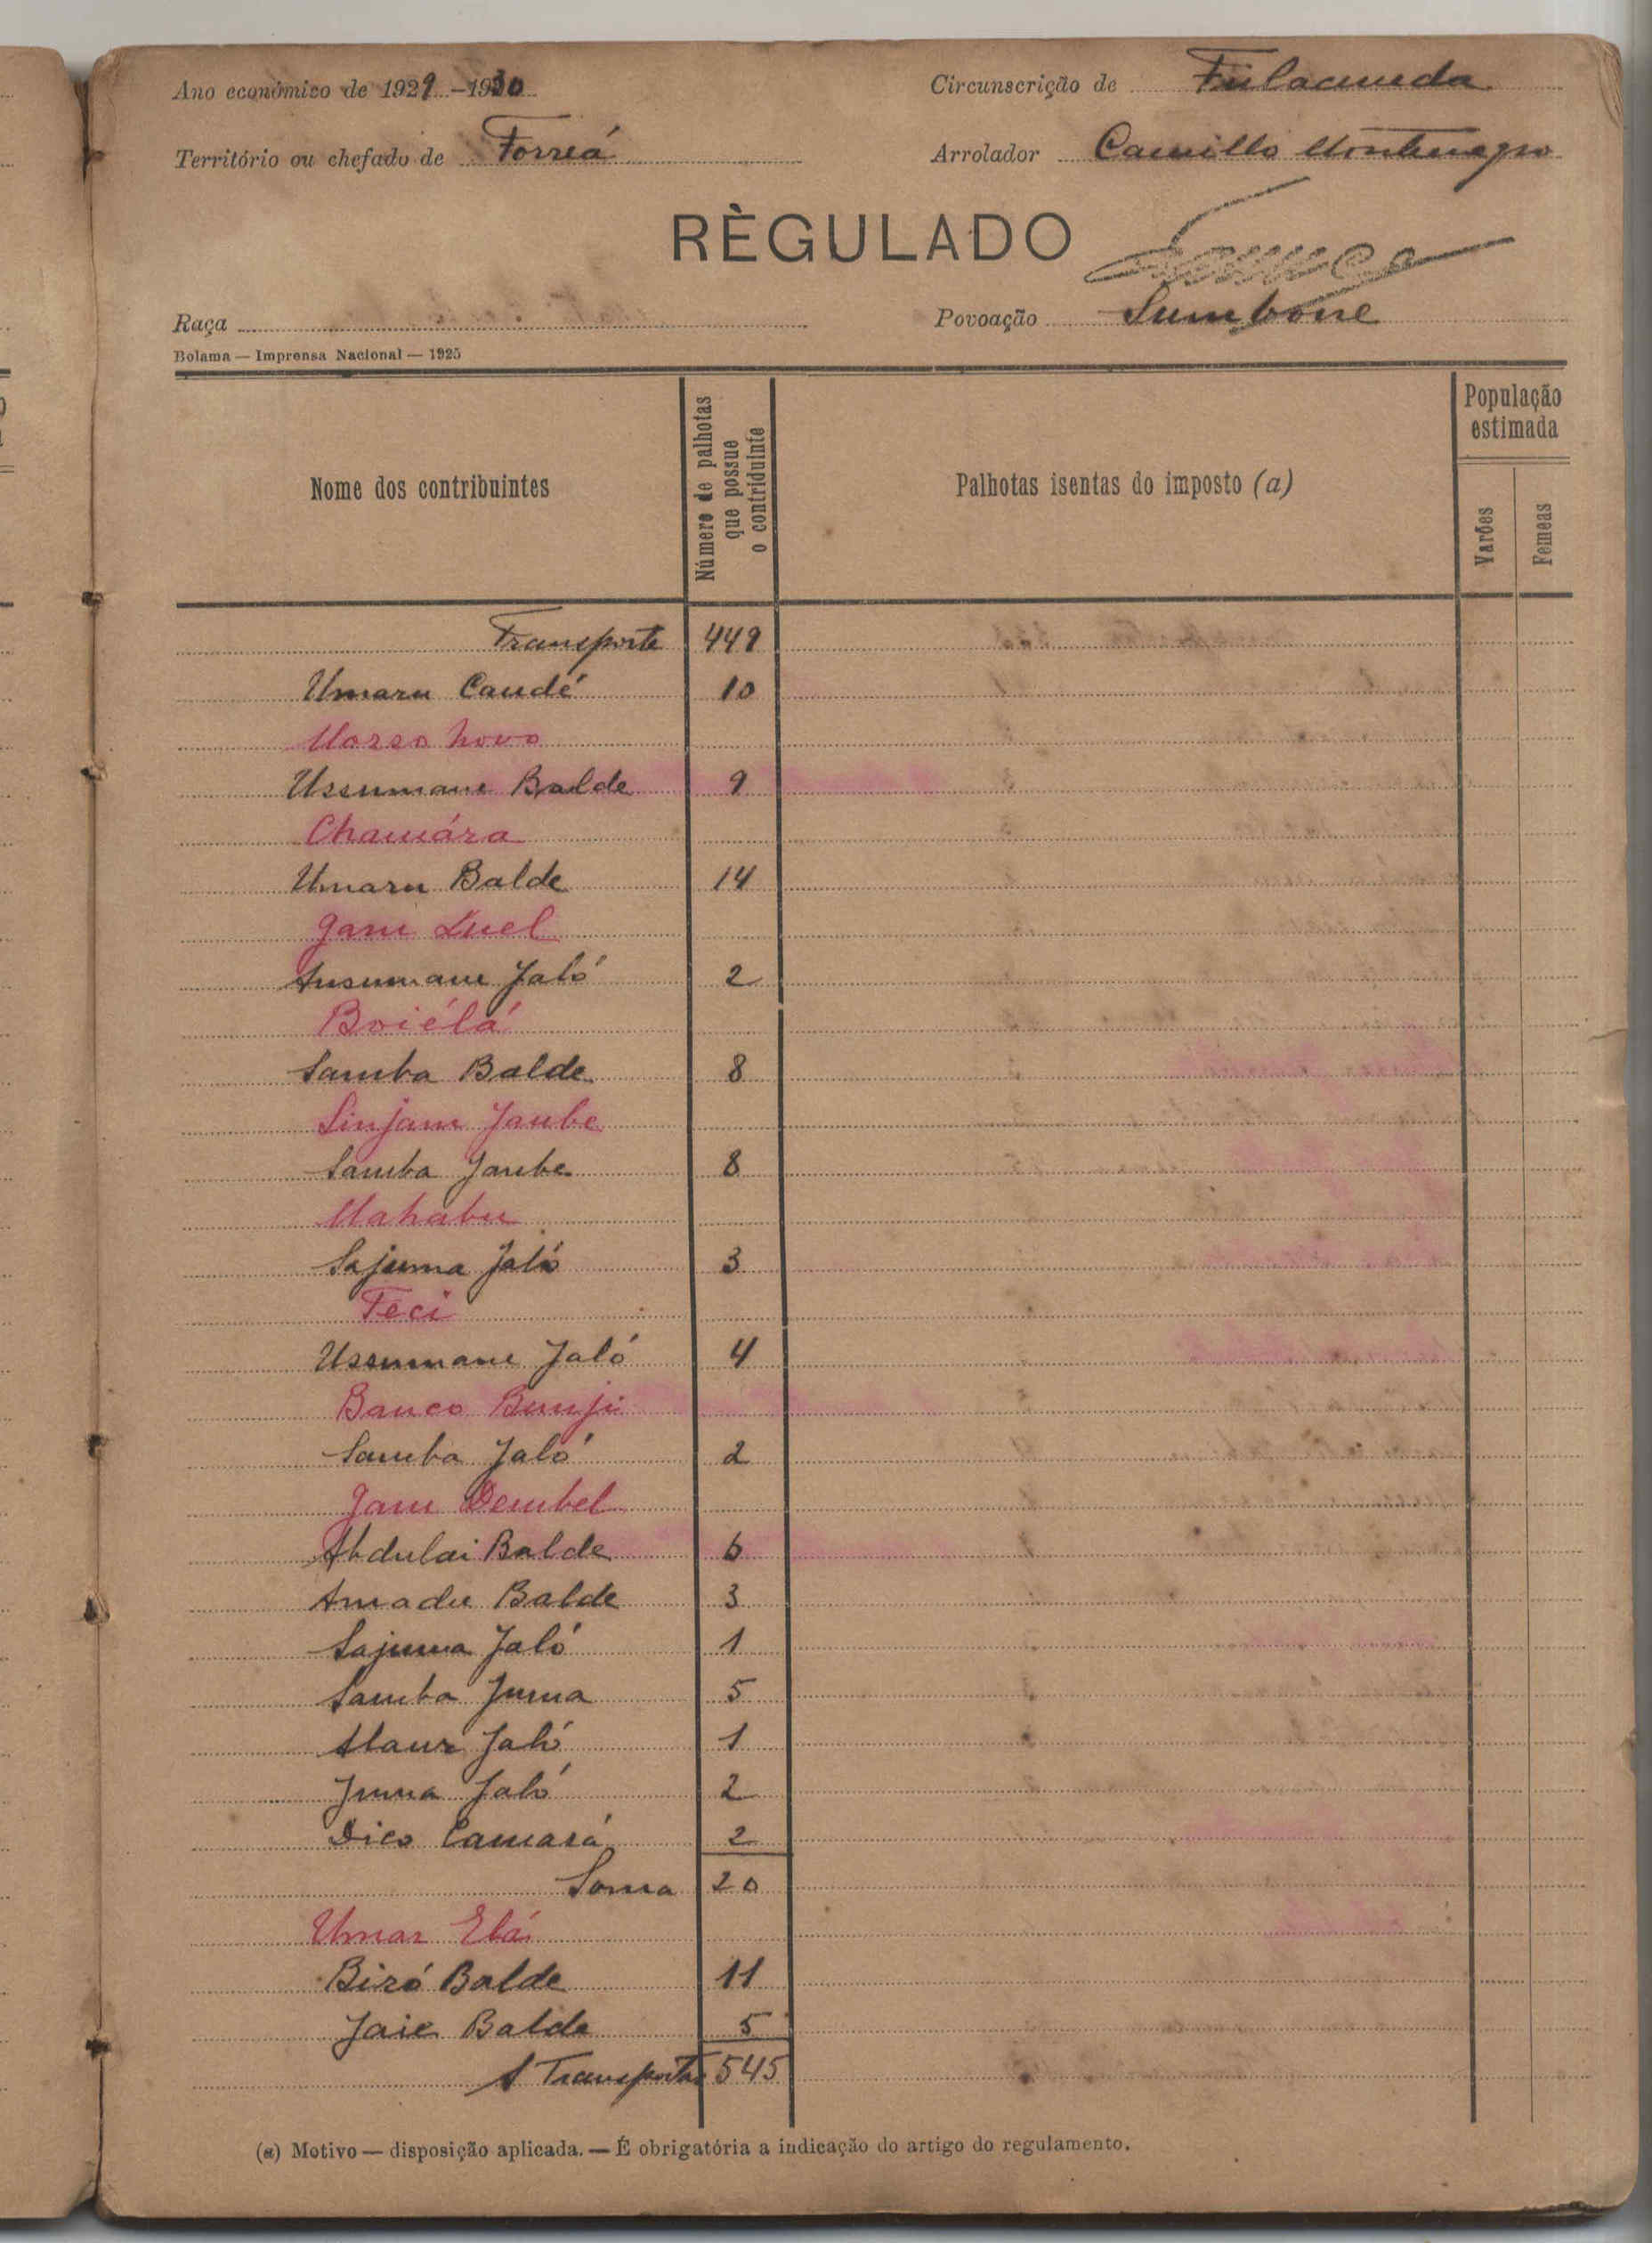 Ano económico de 1929 - 1930 Circunscrição de Fulacunda
Território ou chefado de Forreá Arrolador Camillo Montenegro
RÈGULADO
Raça Povoação Sumbone
Bolama — Imprensa Nacional — 1925
Nome dos contribuintes Número de palhotas que possue o contriduinte Palhotas isentas do imposto (a) População estimada
Varões Femeas
Transporte 449
Umaru Candé 10
Morso novo
Ussumane Balde 9
Chamára
Umaru Balde 14
Gam Luel
Ansumane Jaló 2
Boiélá
Samba Balde 8
Sinjam Jaube
Samba Jaube 8
Mahabu
Sajuma Jaló 3
Teci
Ussumane Jaló 4
Banco Bunji
Samba Jaló 2
Gam Dembel
Abdulai Balde 6
Amadu Balde 3
Sajuma Jaló 1
Samba Juma 5
Jaló 1
Juma Jaló 2
Dico Camará 2
Soma 20
Umar Elá
Biró Balde 11
Jaie Balde 5
A Transportar 545
(a) Motivo — disposição aplicada. — É obrigatória a indicação do artigo do regulamento.